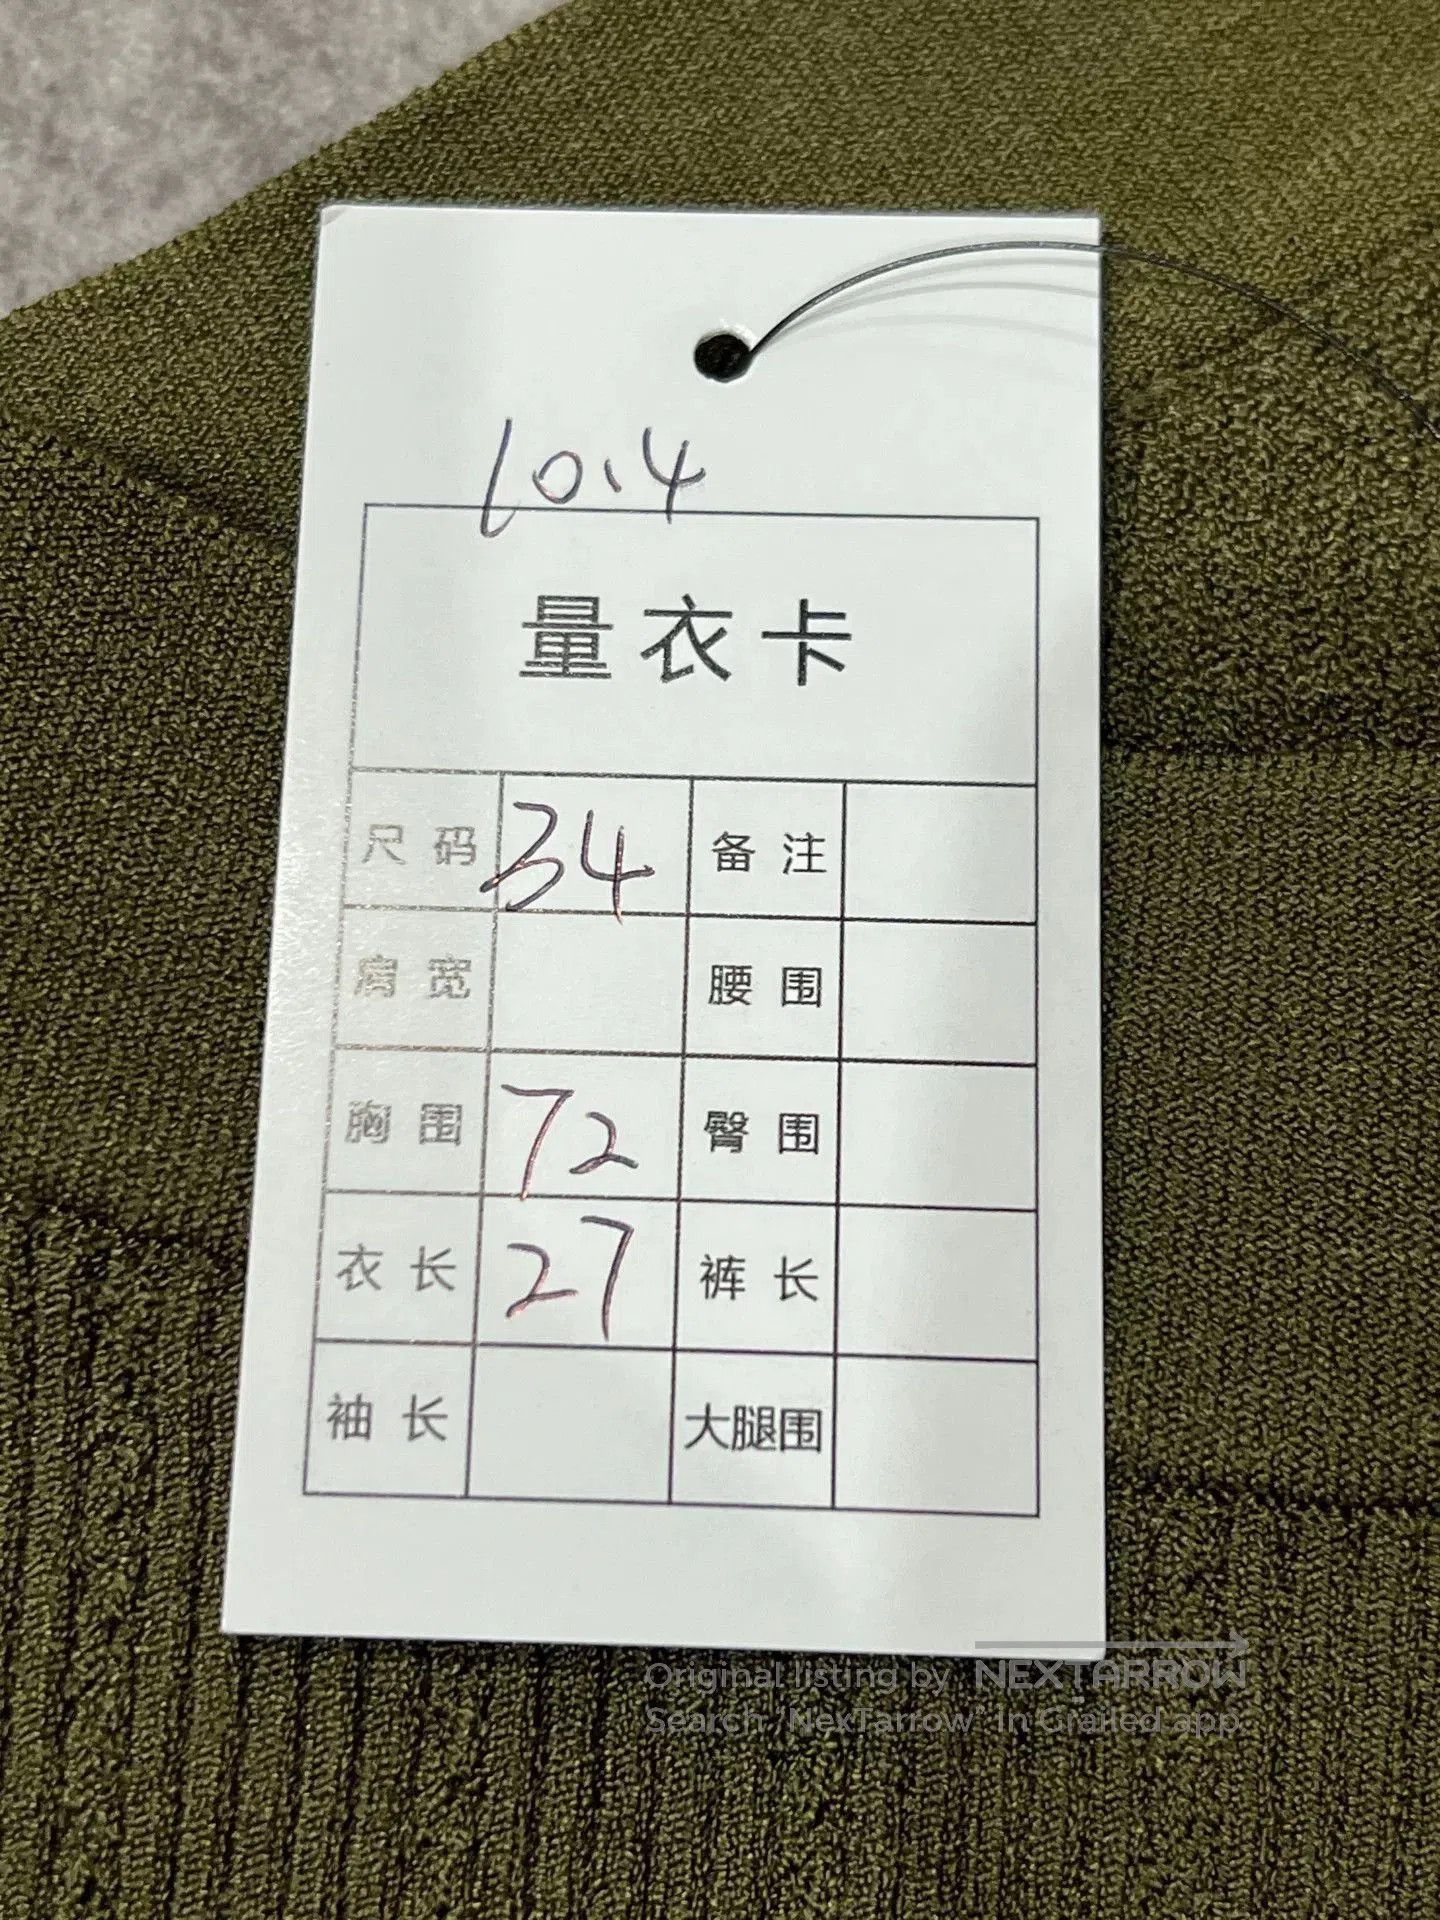 10.4
量衣卡
尺码 34 备注
肩宽 腰围
胸围 72 臀围
衣长 27 裤长
袖长 大腿围
Original listing by NEXTARROW
Search "NexTarrow" in Grailed app